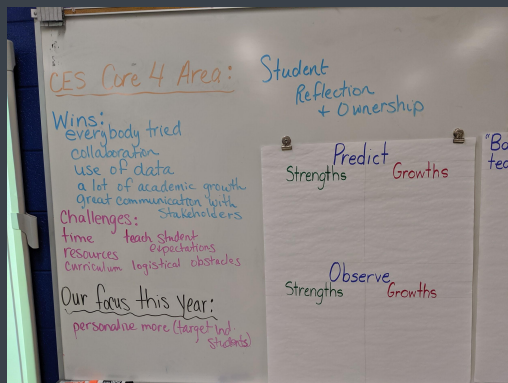 CES Core 4 Area:
Student
Reflection
+ Ownership
Wins:
everybody tried
collaboration
use of data
a lot of academic growth
great communication with
stakeholders
Challenges:
time teach student
resources expectations
curriculum logistical obstacles
Our focus this year:
personalize more (target ind.
students)
Predict
Strengths Growths
Observe
Strengths Growths